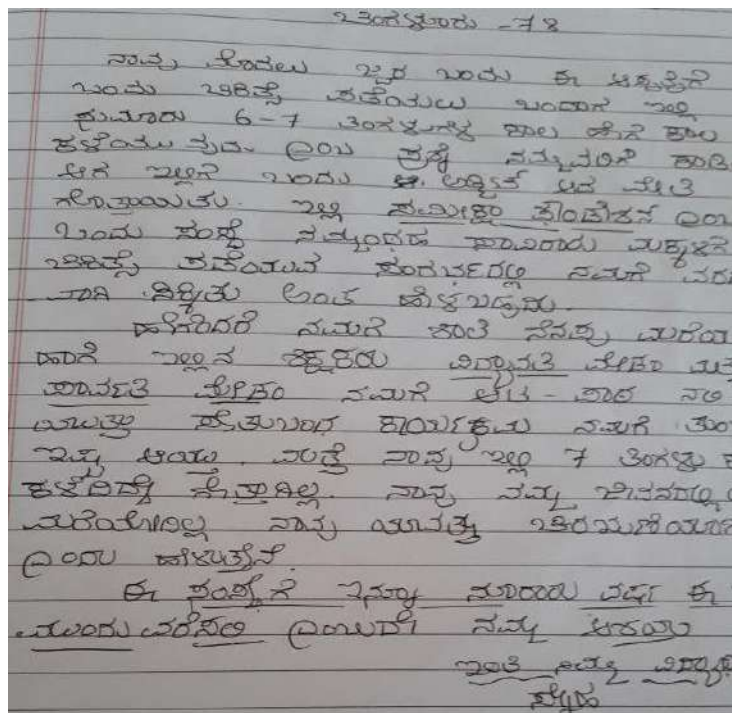 ಬೆಂಗಳೂರು - 78
ನಾವು ಮೊದಲು ಜ್ವರ ಬಂದು ಈ ಆಸ್ಪತ್ರೆಗೆ
ಬಂದು ಚಿಕಿತ್ಸೆ ಪಡೆಯಲು ಬಂದಾಗ ಇಲ್ಲಿ
ಸುಮಾರು 6-7 ತಿಂಗಳುಗಳ ಕಾಲ ಹೇಗೆ ಕಾಲ
ಕಳೆಯುವುದು ಎಂಬ ಪ್ರಶ್ನೆ ನಮ್ಮವರಿಗೆ ಕಾಡಿ
ಆಗ ಇಲ್ಲಿಗೆ ಬಂದು ಮೇಲೆ
ಗೊತ್ತಾಯಿತು. ಇಲ್ಲಿ ಫೌಂಡೇಶನ ಎಂಬ
ಒಂದು ಸಂಸ್ಥೆ ನಮ್ಮಂತಹ ಸಾವಿರಾರು ಮಕ್ಕಳಿಗೆ
ಚಿಕಿತ್ಸೆ ಪಡೆಯುವ ಸಂದರ್ಭದಲ್ಲಿ ನಮಗೆ ವರ
ವಾಗಿ ಸಿಕ್ಕಿತು ಅಂತ ಹೇಳಬಹುದು.
ಹೇಗೆಂದರೆ ನಮಗೆ ಶಾಲೆ ನೆನಪು ಮರೆಯ
ಹಾಗೆ ಇಲ್ಲಿನ ಶಿಕ್ಷಕರು ವಿದ್ಯಾವತಿ ಮೇಡಂ ಮತ್ತು
ಪಾರ್ವತಿ ಮೇಡಂ ನಮಗೆ ಆಟ - ಪಾಠ
ಕಾರ್ಯಕ್ರಮ ನಮಗೆ ತುಂಬ
ಇಷ್ಟ ಆಯಿತು. ಮತ್ತೆ ನಾವು ಇಲ್ಲಿ 7 ತಿಂಗಳು
ಕಳೆದಿದ್ದೆ ಗೊತ್ತಾಗಿಲ್ಲ. ನಾವು ನಮ್ಮ ಜೀವನದಲ್ಲಿ
ಮರೆಯೋದಿಲ್ಲ ನಾವು ಯಾವತ್ತು ಚಿರಋಣಿಯಾಗಿ
ಎಂದು ಹೇಳುತ್ತೇನೆ.
ಈ ಸಂಸ್ಥೆಗೆ ಇನ್ನೂ ನೂರಾರು ವರ್ಷ ಈ
ಮುಂದುವರೆಸಲಿ ಎಂಬುದೇ ನಮ್ಮ ಆಶಯ
ಇಂತಿ ನಿಮ್ಮ ವಿದ್ಯಾರ್ಥಿ
ಸ್ನೇಹ